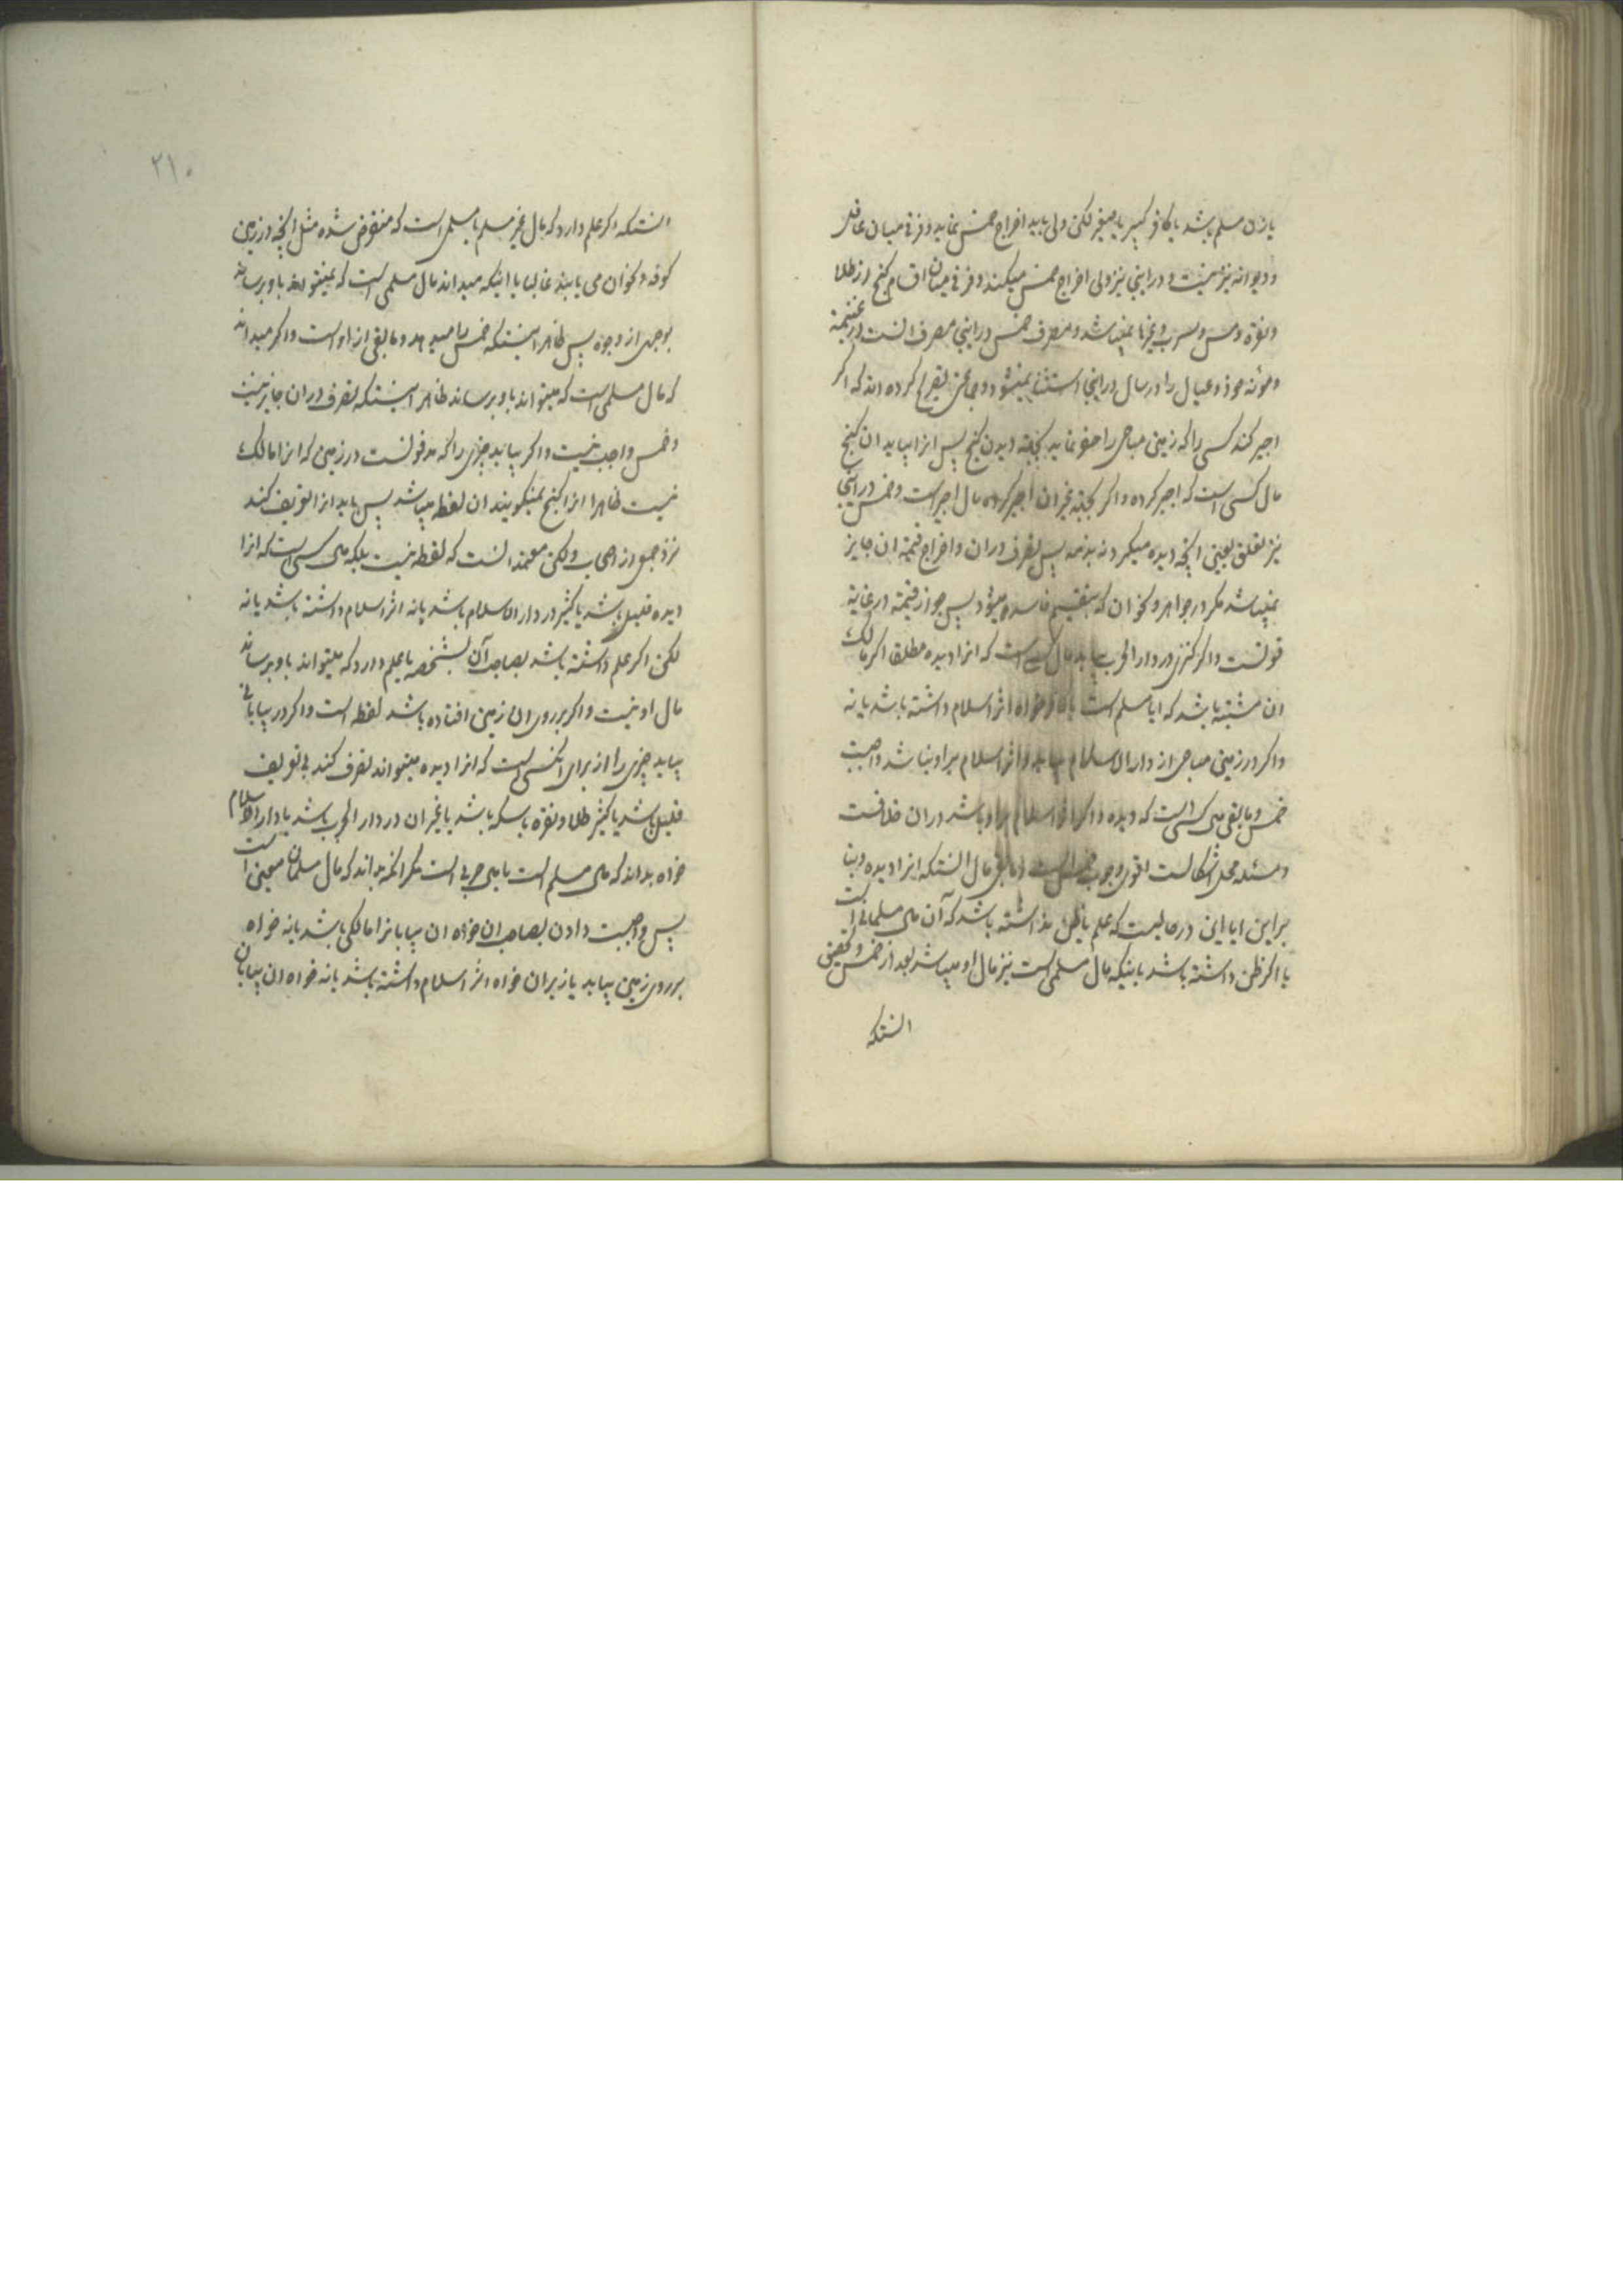 یا زن مسلم باشد یا کافر کبیر یا صغیر لکن ولی باید اخراج خمس نماید و فرق میان عاقل
و دیوانه نیز نیست و در اینجا نیز ولی اخراج خمس میکند و فرق میان اقسام کنج از طلا
و نقره و مس و سرب و غیرها نمیباشد و مصرف خمس در اینجا مصرف انست در غنیمة
و مؤنه خود و عیال را در سال در اینجا استثنا نمیشود و جماعتی تصریح کرده اند که اگر
اجیر کند کسی را که زمین مباحی را حفر نماید بجهة دیدن کنج پس انرا بیابد ان کنج
مال کسی است که اجیر کرده و اگر بجهة غیر ان اجیر کرده مال اجیر است و خمس در اینجا
نیز تعلق بعین انچه دیده میگیرد نه بذمه پس تصرف در ان و اخراج قیمة ان جایز
نمیباشد مگر در جواهر و نحو ان که بتقسیم فاسد میشود پس جواز قیمة در غایة
قوتست و اگر کنزی در دار الحرب بیابد مال کسی است که انرا دیده مطلقا اگر مالک
ان مشتبه باشد که ایا مسلم است یا کافر خواه اثر اسلام داشته باشد یا نه
و اگر در زمین مباحی از دار الاسلام بیابد و اثر اسلام بر او نباشد واجبست
خمس و مابقی مال کسی است که دیده و اگر اثر اسلام بر او باشد در ان خلافست
و مسئله محل اشکالست اقوی وجوب خمس است و مابقی مال انستکه انرا دیده و بنا
بر این ایا این در حالیست که علم یا ظن نداشته باشد که آن مال مسلمانی است
یا اگر ظن داشته باشد باینکه مال مسلمی است نیز مال او میباشد بعد از خمس و تحقیق
انستکه
۲۱۰
انستکه اگر علم دارد که مال غیر مسلم یا مسلمی است که منقرض شده مثل انچه در زمین
کوفه و نحو ان می یابند غالبا یا اینکه میداند مال مسلمی است که نمیتواند باو برساند
بوجهی از وجوه پس ظاهر اینستکه خمس را میدهد و مابقی از او است و اگر میداند
که مال مسلمی است که میتواند باو برساند ظاهر اینستکه تصرف در ان جایز نیست
و خمس واجب نیست و اگر بیابد چیزی را که مدفونست در زمین که انرا مالک
نیست ظاهرا انرا کنج نمیگویند ان لقطه میباشد پس باید انرا تعریف کند
نزد جمعی از اصحاب ولکن معتمد انست که لقطه نیست بلکه مال کسی است که انرا
دیده قلیل باشد یا کثیر در دار الاسلام باشد یا نه اثر اسلام داشته باشد یا نه
لکن اگر علم داشته باشد بصاحب آن بشخصه یا علم دارد که میتواند باو برساند
مال او نیست و اگر بر روی ان زمین افتاده باشد لقطه است و اگر در بیابانی
بیابد چیزی را از برای انکسی است که انرا دیده میتواند تصرف کند بی تعریف
قلیل باشد یا کثیر طلا و نقره با سکه باشد یا غیر ان در دار الحرب باشد یا دار الاسلام
خواه بداند که مال مسلم است یا مال حربی است مگر انکه بداند که مال مسلمان معینی است
پس واجبست دادن بصاحب ان خواه ان بیابانرا مالکی باشد یا نه خواه
بر روی زمین بیابد یا زیر ان خواه اثر اسلام داشته باشد یا نه خواه ان بیابان